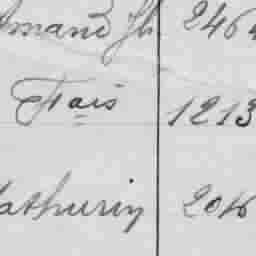 Amand Jh 246
Fais 1213
athurin 2016